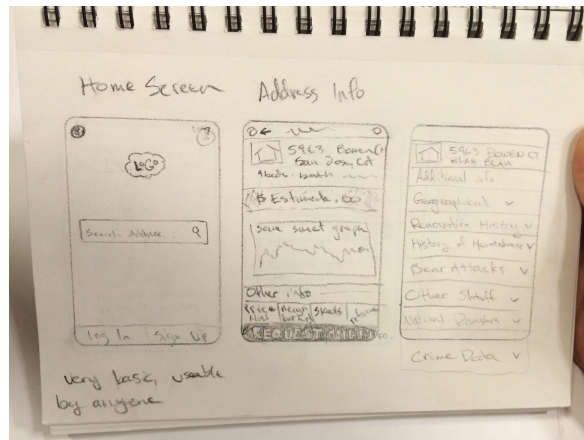 Home Screen
Address Info
LOGO
Search Address...
Log In
Sign Up
very basic, useable
by anyone
5963 Bowen Ct
San Dosy, CA
4 beds
$ Estimate .00
some sweet graph
Other info
Price
Hist
Neigh
borhood
Skeds
REQUEST
5963 BOWEN CT
BLAH BLAH
Additional info
Geographical
Renovation History
History of Maintenance
Bear Attacks
Other Stuff
Natural Disasters
Crime Data